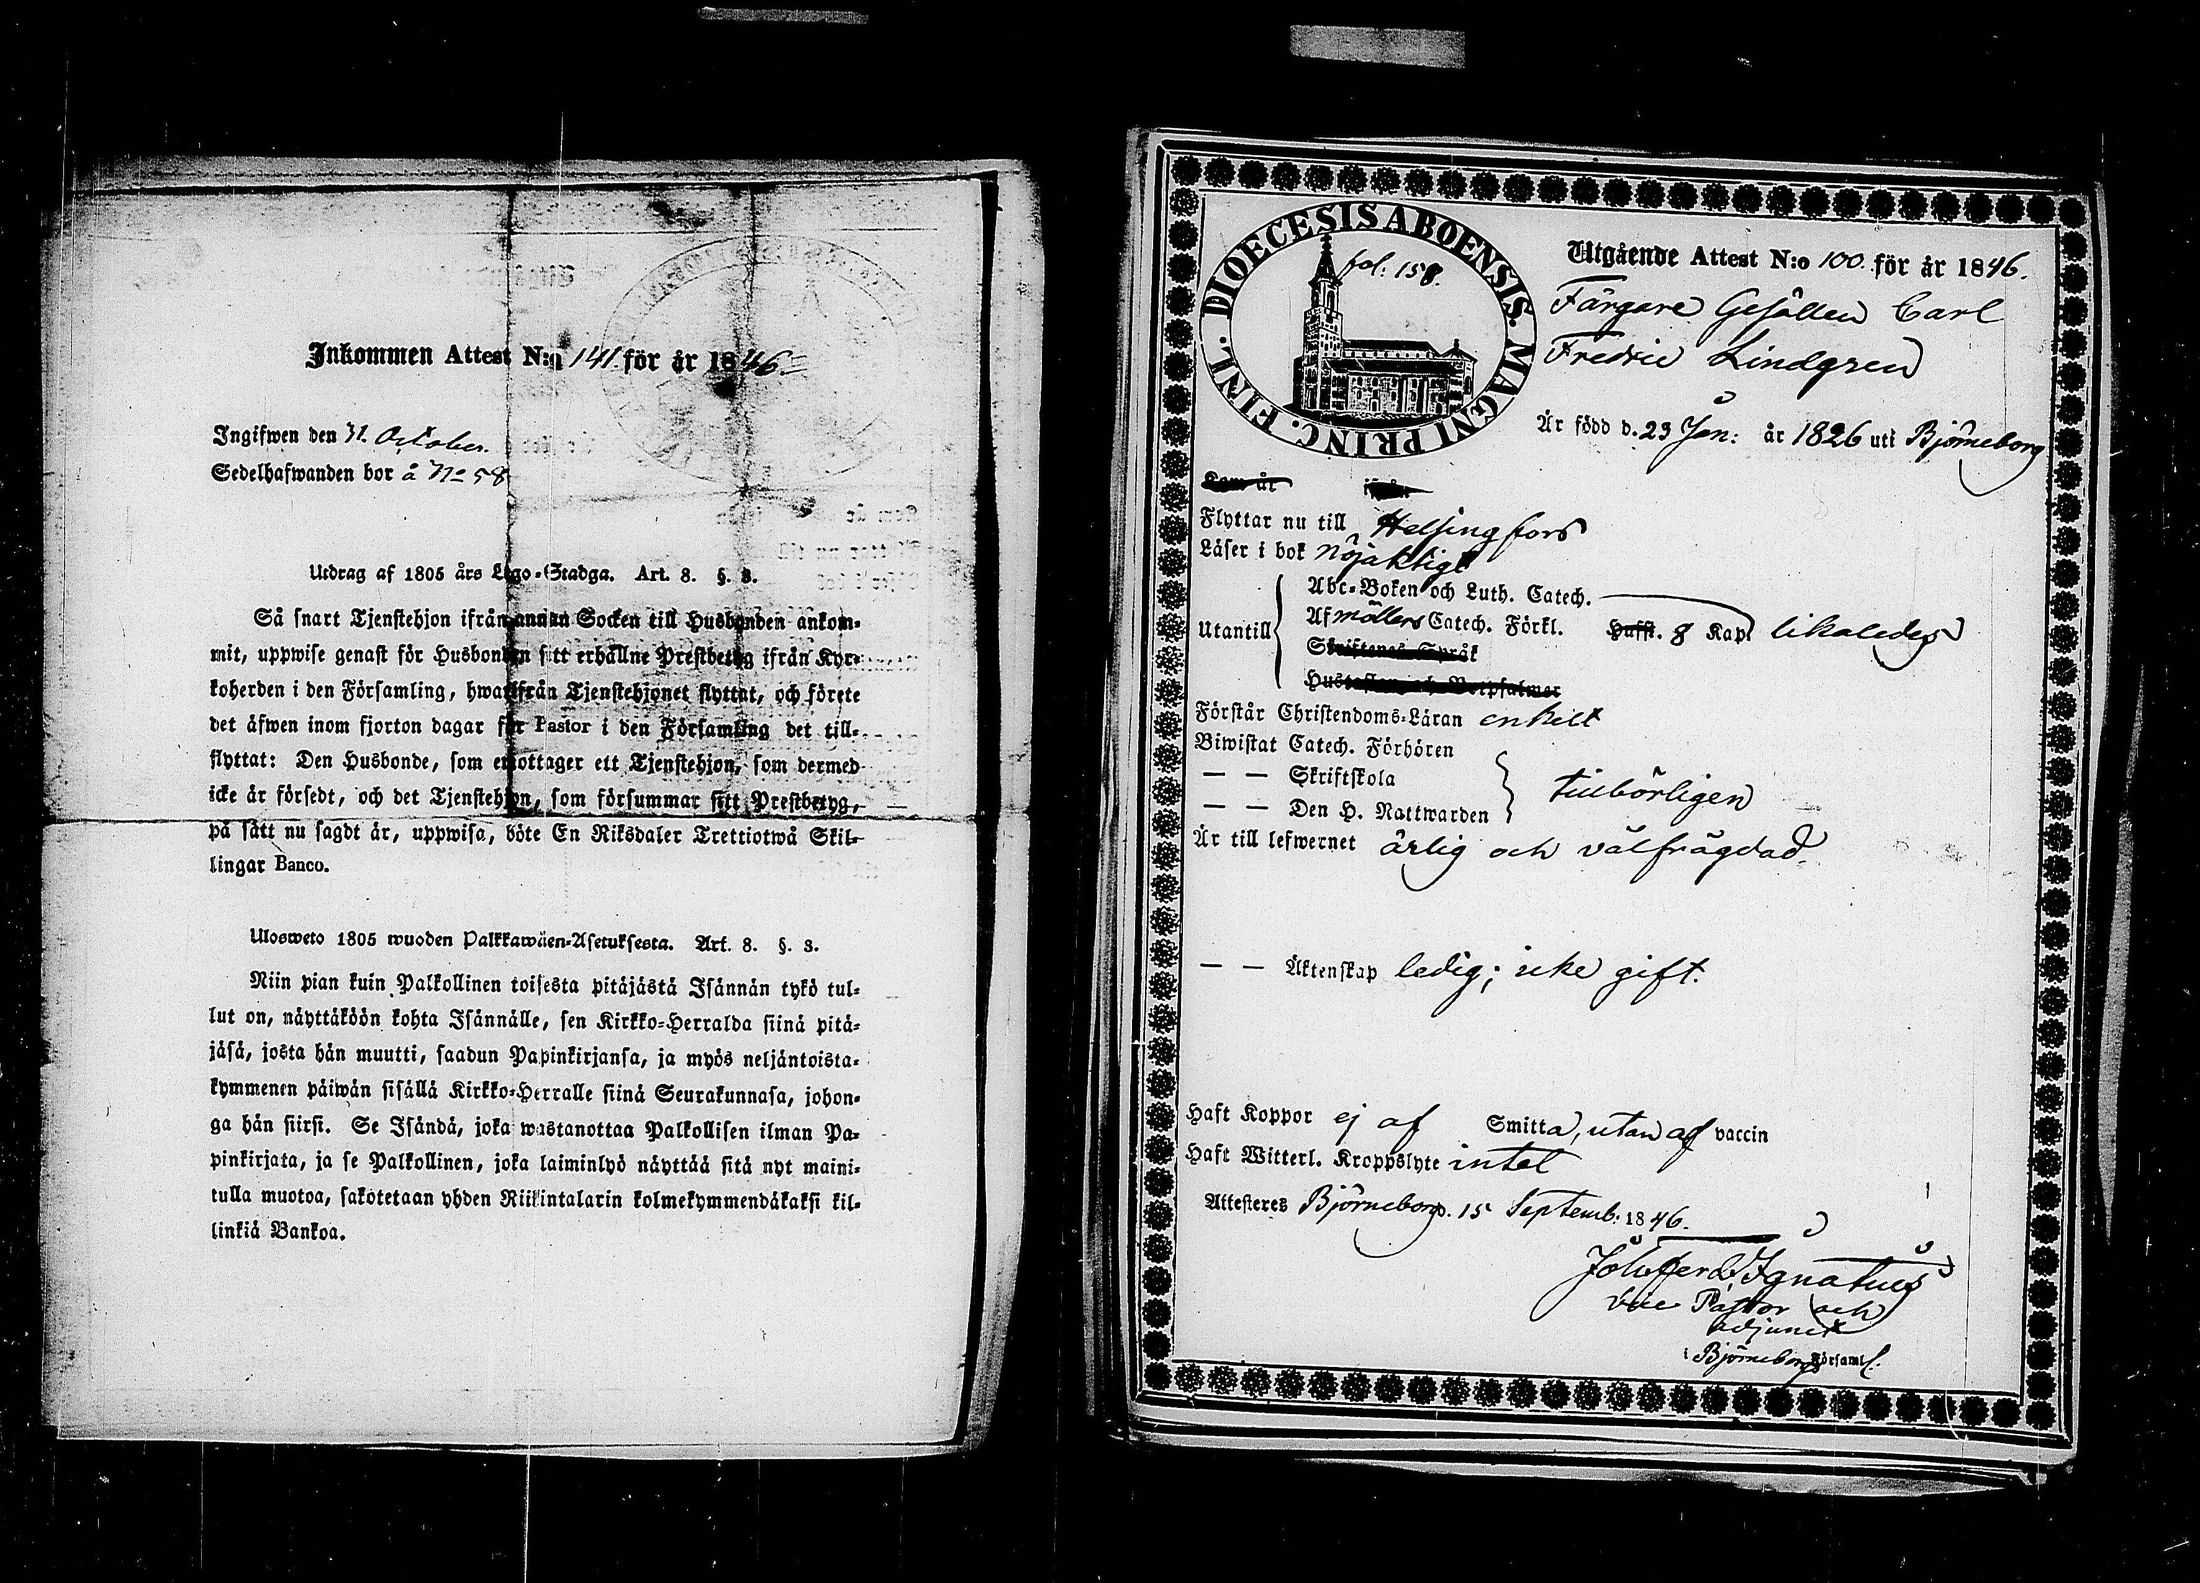 Inkommen Attest N:o 141. för år 1846
Ingifwen den 31. October.
Sedelhafwanden bor å No 58
Utdrag af 1805 års Lego-Stadga. Art. 8. §. 3.
Så snart Tjenstehjon ifrån annan Socken till Husbonden ankom-
mit, uppwise genast för Husbonden sitt erhållne Prestbetyg ifrån Kyr-
koherden i den Församling, hwarifrån Tjenstehjonet flyttat, och förete
det äfwen inom fjorton dagar för Pastor i den Församling det till-
flyttat: Den Husbonde, som emottager ett Tjenstehjon, som dermed
icke är försedt, och det Tjenstehjon, som försummar sitt Prestbetyg,
på sätt nu sagdt är, uppwisa, böte En Riksdaler Trettiotwå Skil-
lingar Banco.
Ulosweto 1805 wuoden Palkkawäen-Asetuksesta. Art. 8. §. 3.
Niin pian kuin Palkollinen toisesta pitäjästä Isännän tykö tul-
lut on, näyttäköön kohta Isännälle, sen Kirkko-Herralda siinä pitä-
jäsä, josta hän muutti, saadun Papinkirjansa, ja myös neljäntoista-
kymmenen päiwän sisällä Kirkko-Herralle siinä Seurakunnasa, johon-
ga hän siirsi. Se Isändä, joka wastanottaa Palkollisen ilman Pa-
pinkirjata, ja se Palkollinen, joka laiminlyö näyttää sitä nyt maini-
tulla muotoa, sakotetaan yhden Riikintalarin kolmekymmendäkaksi kil-
linkiä Bankoa.
DIOECESIS ABOENSIS. MAGNI PRINC. FINL.
fol: 158.
Utgående Attest N:o 100. för år 1846.
Färgare Gesällen Carl
Fredric Lindgren
Är född d. 23 Jan: år 1826 uti Björneborg
Kom år ifrån
Flyttar nu till Helsingfors
Läser i bok nöjaktigt
Utantill
Abc-Boken och Luth. Catech.
Af Möllers Catech. Förkl. Hufst. 8 Kap. likaledes
Skriftenes Språk
Hustaflan och Botpsalmer
Förstår Christendoms-Läran enkelt
Biwistat Catech. Förhören
— — Skriftskola
tillbörligen
— — Den H. Nattwarden
Är till lefwernet ärlig och välfrägdad.
— — Äktenskap ledig; icke gift.
Haft Koppor ej af Smitta, utan af vaccin
Haft Witterl. Kroppslyte intet
Attesteres Björneborg d. 15 Septemb: 1846.
Ignatius
vice Pastor och
adjunct
i Björneborgs Församl.